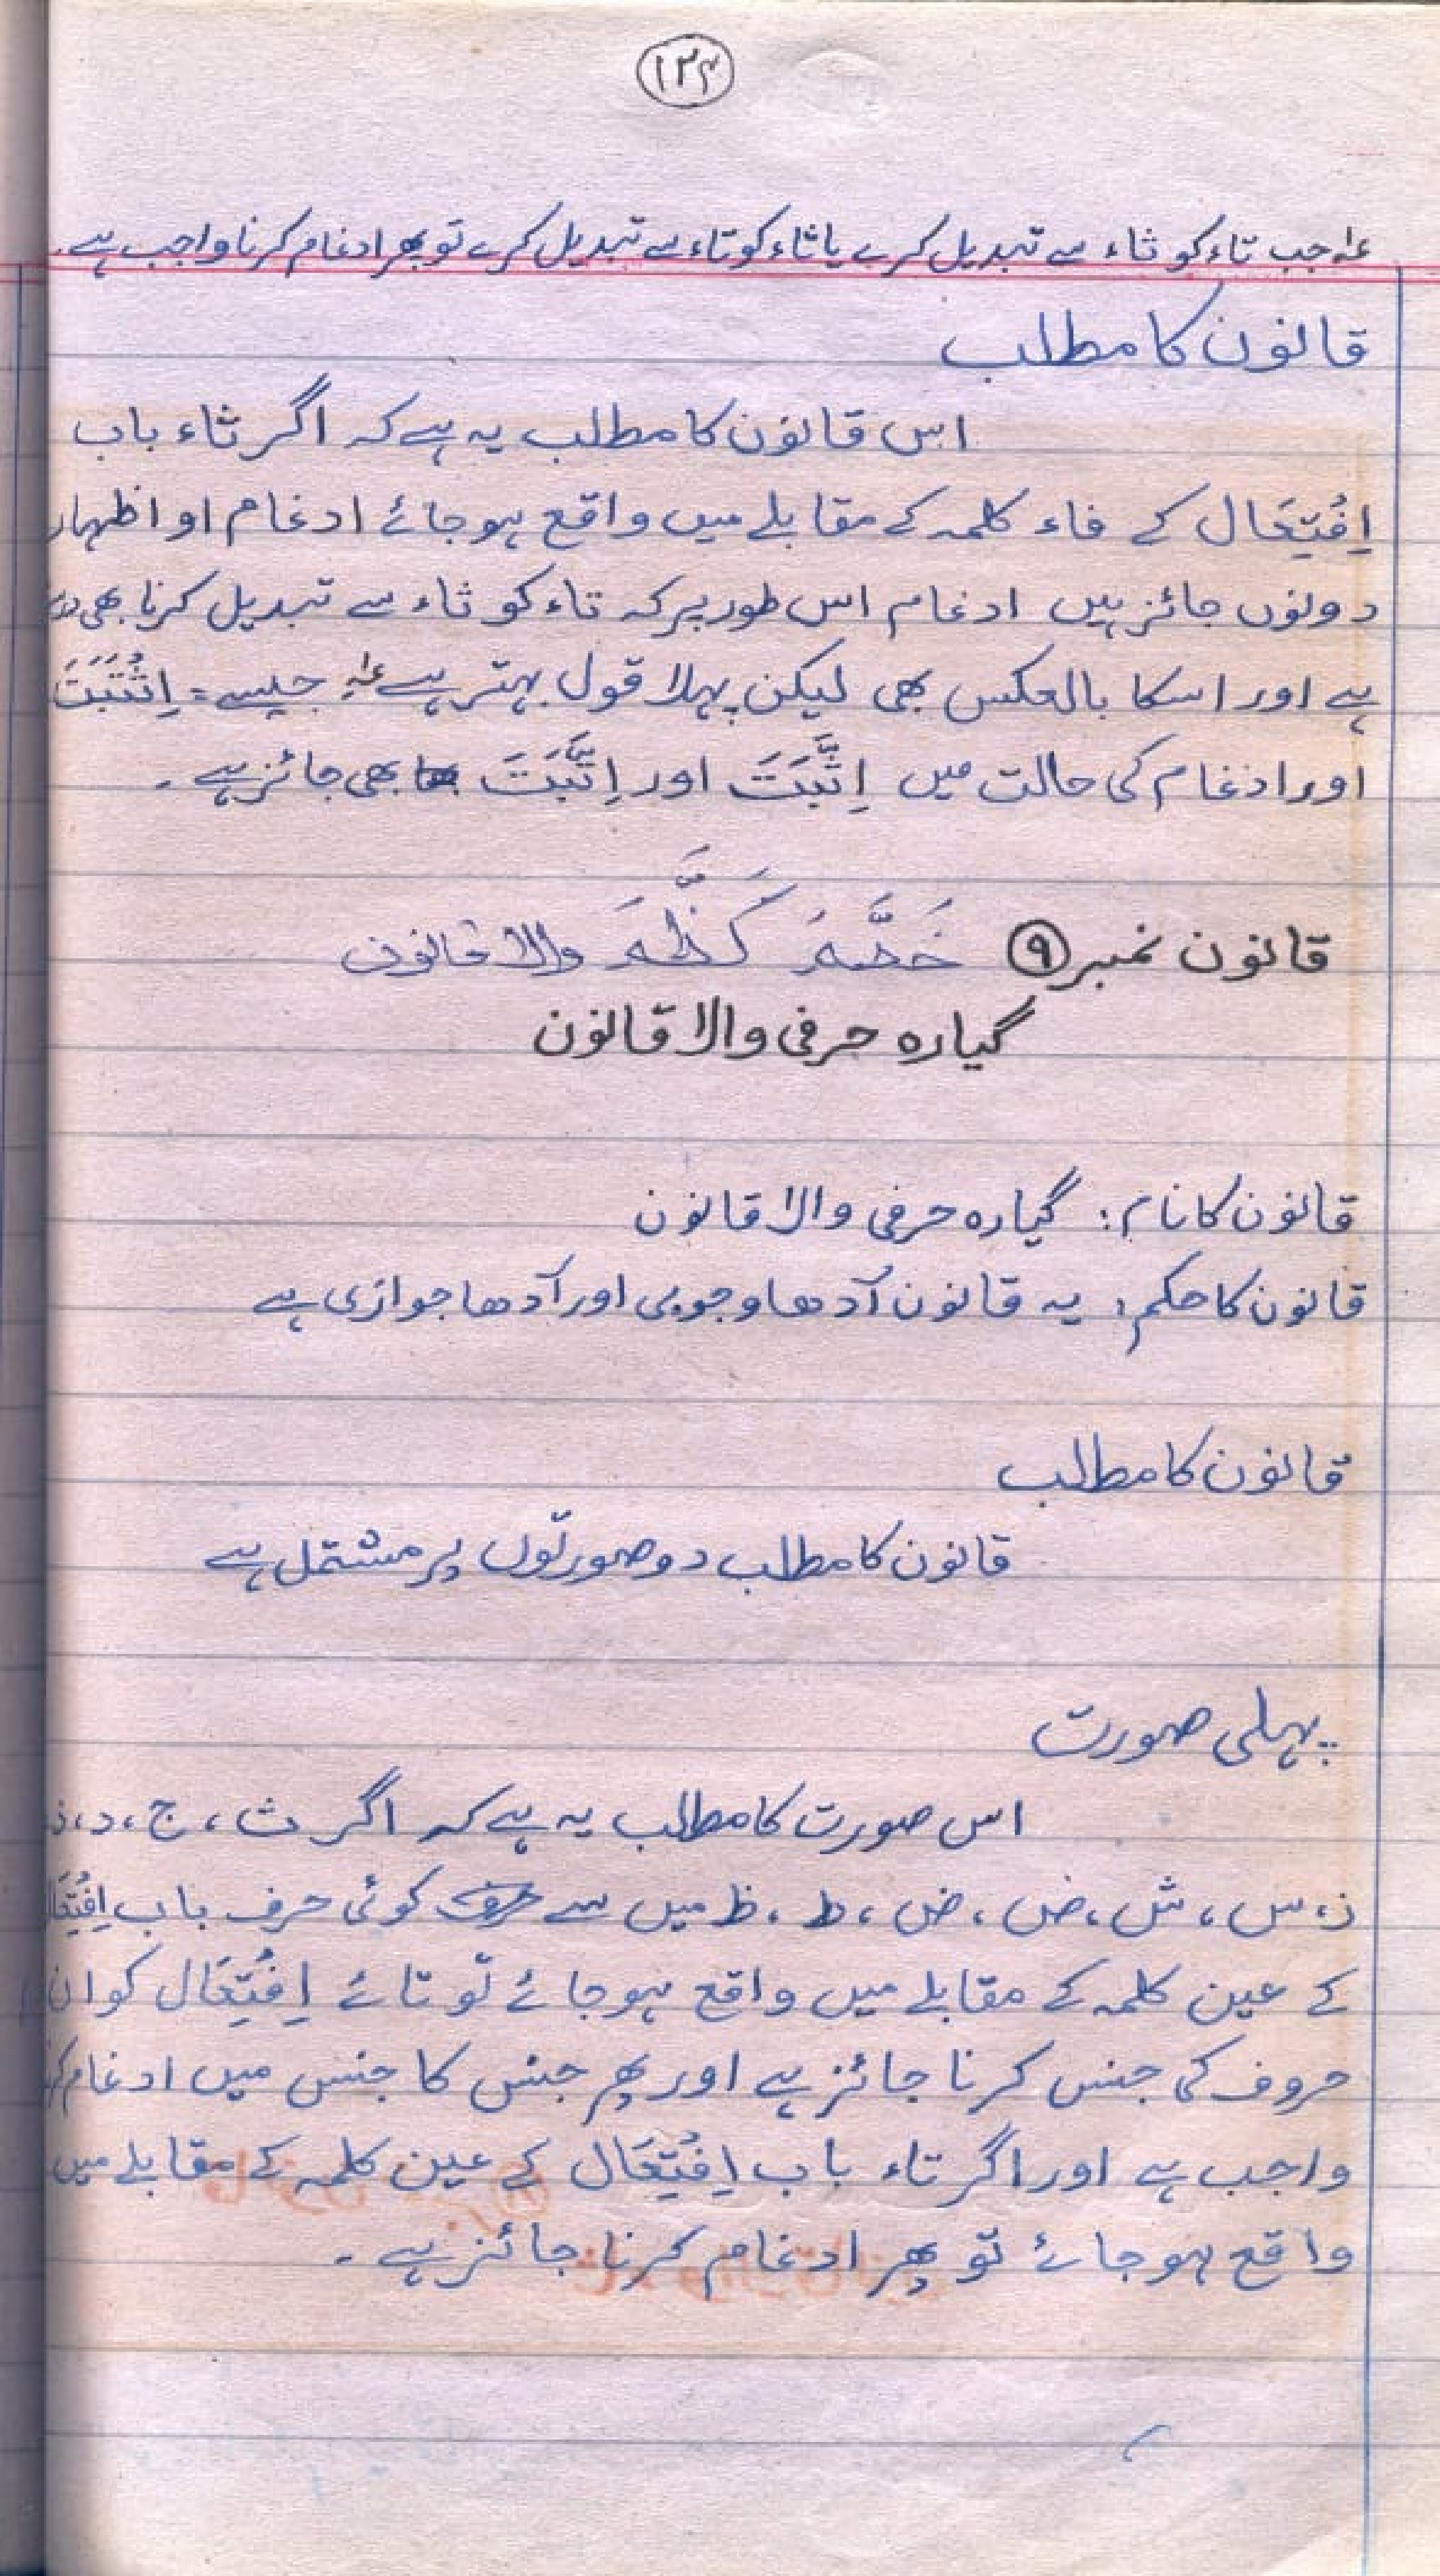 ۱۳۴
؏۱ جب تاء کو ثاء سے تبدیل کرے یا ثاء کو تاء سے تبدیل کرے تو پھر ادغام کرنا واجب ہے۔
قانون کا مطلب
اس قانون کا مطلب یہ ہے کہ اگر ثاء باب
اِفْتِعَال کے فاء کلمہ کے مقابلے میں واقع ہوجائے ادغام او اظہار
دونوں جائز ہیں ادغام اس طور پر کہ تاء کو ثاء سے تبدیل کرنا بھی
ہے اور اسکا بالعکس بھی لیکن پہلا قول بہتر ہے ؏۱ جیسے = اِثْتَبَتَ
اور ادغام کی حالت میں اِثَّبَتَ اور اِتَّبَتَ بھی جائز ہے۔
قانون نمبر ۹ خَصَّمَ کَظَّمَ والا قانون
گیارہ حرفی والا قانون
قانون کا نام: گیارہ حرفی والا قانون
قانون کا حکم: یہ قانون آدھا وجوبی اور آدھا جوازی ہے
قانون کا مطلب
قانون کا مطلب دو صورتوں پر مشتمل ہے
پہلی صورت
اس صورت کا مطلب یہ ہے کہ اگر ث، ج، د، ذ
ز، س، ش، ض، ض، ط، ظ میں سے کوئی حرف باب اِفْتِعَا
کے عین کلمہ کے مقابلے میں واقع ہوجائے تو تائے اِفْتِعَال کو ان
حروف کی جنس کرنا جائز ہے اور پھر جنس کا جنس میں ادغام کر
واجب ہے اور اگر تاء باب اِفْتِعَال کے عین کلمہ کے مقابلے میں
واقع ہوجائے تو پھر ادغام کرنا جائز ہے۔